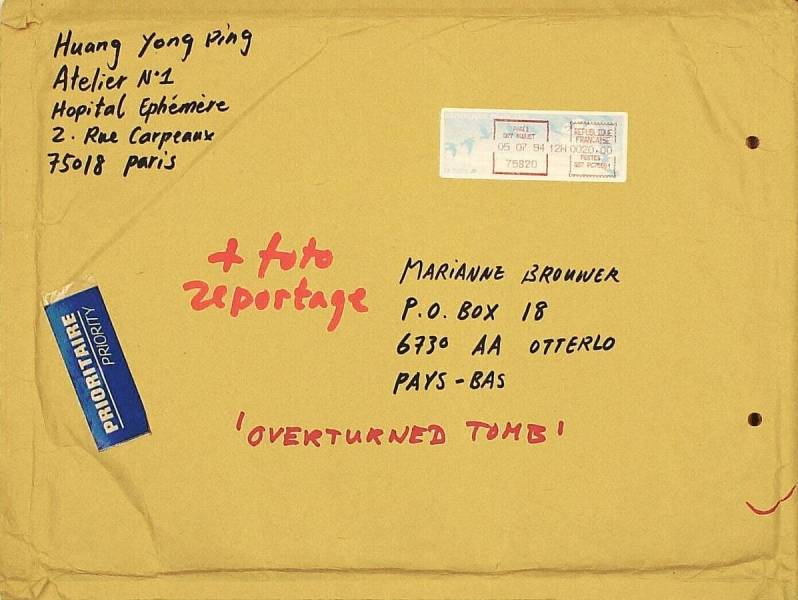 Huang Yong Ping
Atelier N°1
Hopital Ephémère
2. Rue Carpeaux
75018 Paris
REPUBLIQUE
FRANCAISE
05 07 94 12H 0020,00
POSTES
75820
+ foto
reportage
MARIANNE BROUWER
P.O. BOX 18
6730 AA OTTERLO
PAYS-BAS
PRIORITAIRE
PRIORITY
'OVERTURNED TOMB'